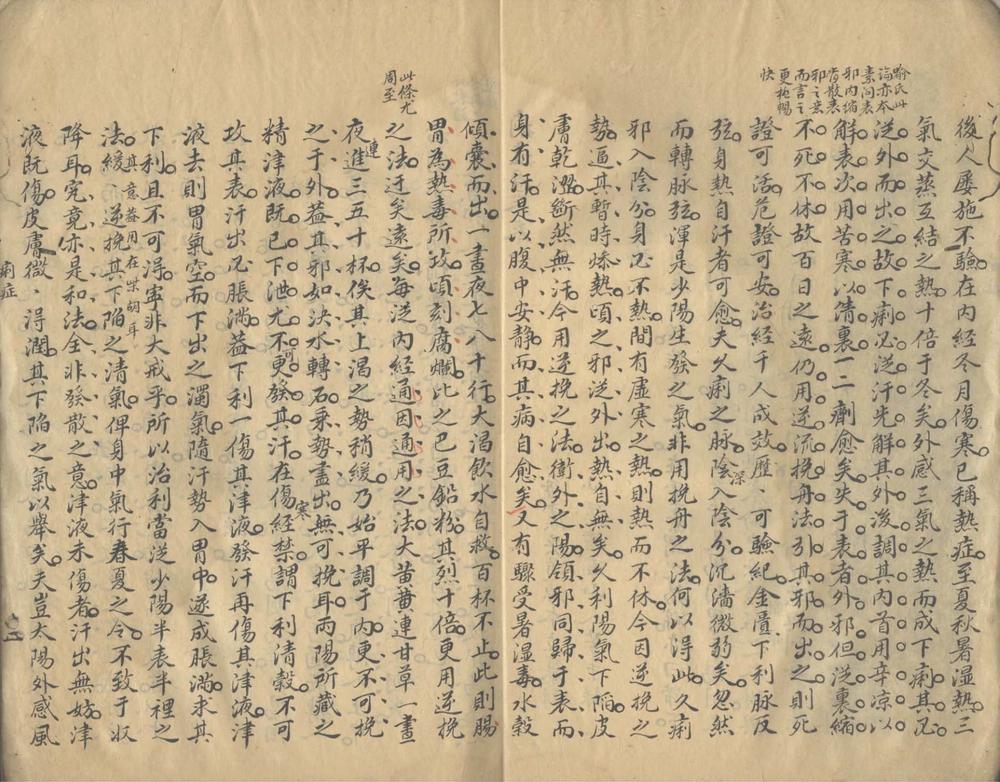 喻氏此
論亦本
素问表
邪内缩
肯散表
邪之炁
而言之
更極暢
快
後人屡施不驗在内經冬月傷寒已稱熱症至夏秋暑湿熱三
氣交蒸互結之熱十倍于冬矣外感三氣之熱而成下痢其必
從外而出之故下痢必從汗先解其外後調其内首用辛凉以
解表次用苦寒以清裏一二劑愈矣失于表者外邪但從裏縮
不死不休故百日之遠仍用逆流挽舟法引其邪而出之則死
證可活危證可安治經千人成效歷、可驗紀金匱下利脉反
弦身熱自汗者可愈夫久痢之脉深入陰分沉濇微弱矣忽然
而轉脉弦渾是少陽生發之氣非用挽舟之法何以得此久痢
邪入陰分身必不熱間有虚寒之熱則熱而不休今因逆挽之
勢逼其暫時燥熱頃之邪從外出熱自無矣久利陽氣下陷皮
膚乾澀斷然無汗今用逆挽之法衛外之陽領邪同歸于表而
身有汗是以腹中安靜而其病自愈矣又有驟受暑湿毒水穀
傾囊而出一晝夜七八十行大渴飲水自救百杯不止此則腸
胃為熱毒所攻頃刻腐爛比之巴豆鉛粉其烈十倍更用逆挽
此條尤
周至
之法迂矣遠矣每從内經通因通用之法大黄黄連甘草一晝
夜連進三五十杯俟其上渴之勢稍緩乃始平調于内更不可挽
之于外蓋其邪如决水轉石乘勢盡出無可挽耳兩陽所藏之
精津液既已下泄尤不可更發其汗在傷寒經禁謂下利清穀不可
攻其表汗出必脹滿蓋下利一傷其津液發汗再傷其津液津
液去則胃氣空而下出之濁氣隨汗勢入胃中遂成脹滿求其
下利且不可得寧非大戒乎所以治利當從少陽半表半裡之
法緩、其意蓋用在柴胡耳逆挽其下陷之清氣俾身中氣行春夏之令不致于收
降耳究竟亦是和法全非發散之意津液未傷者汗出無妨津
液既傷皮膚微、淂潤其下陷之氣以舉矣夫豈太陽外感風
痢症